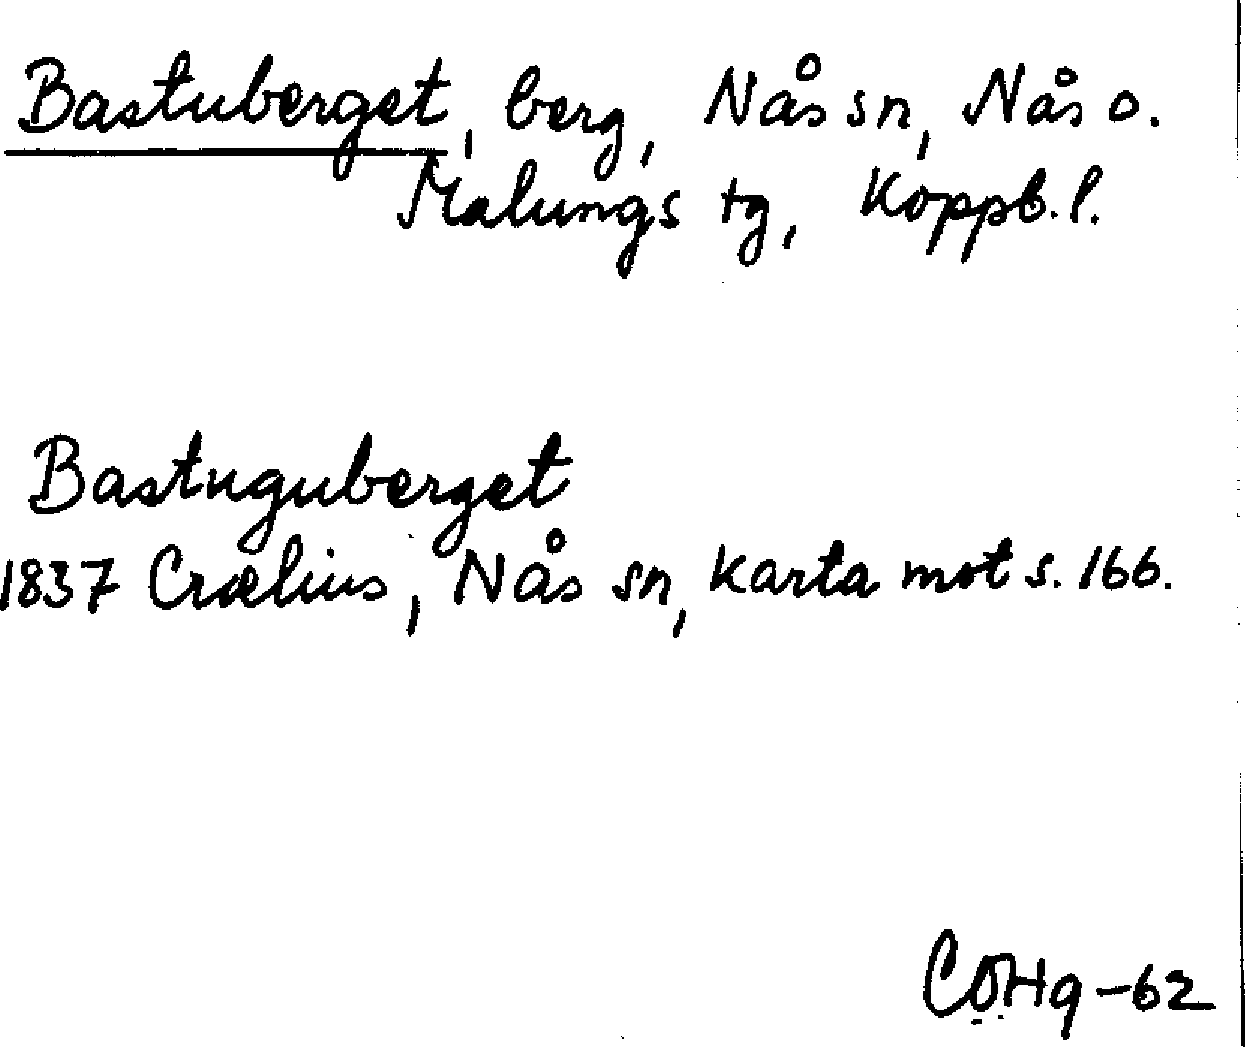 Bastuberget, berg, Nås sn, Nås o.
Malungs tg, Koppb. l.
Bastuguberget
1837 Crælius, Nås sn, karta mot s. 166.